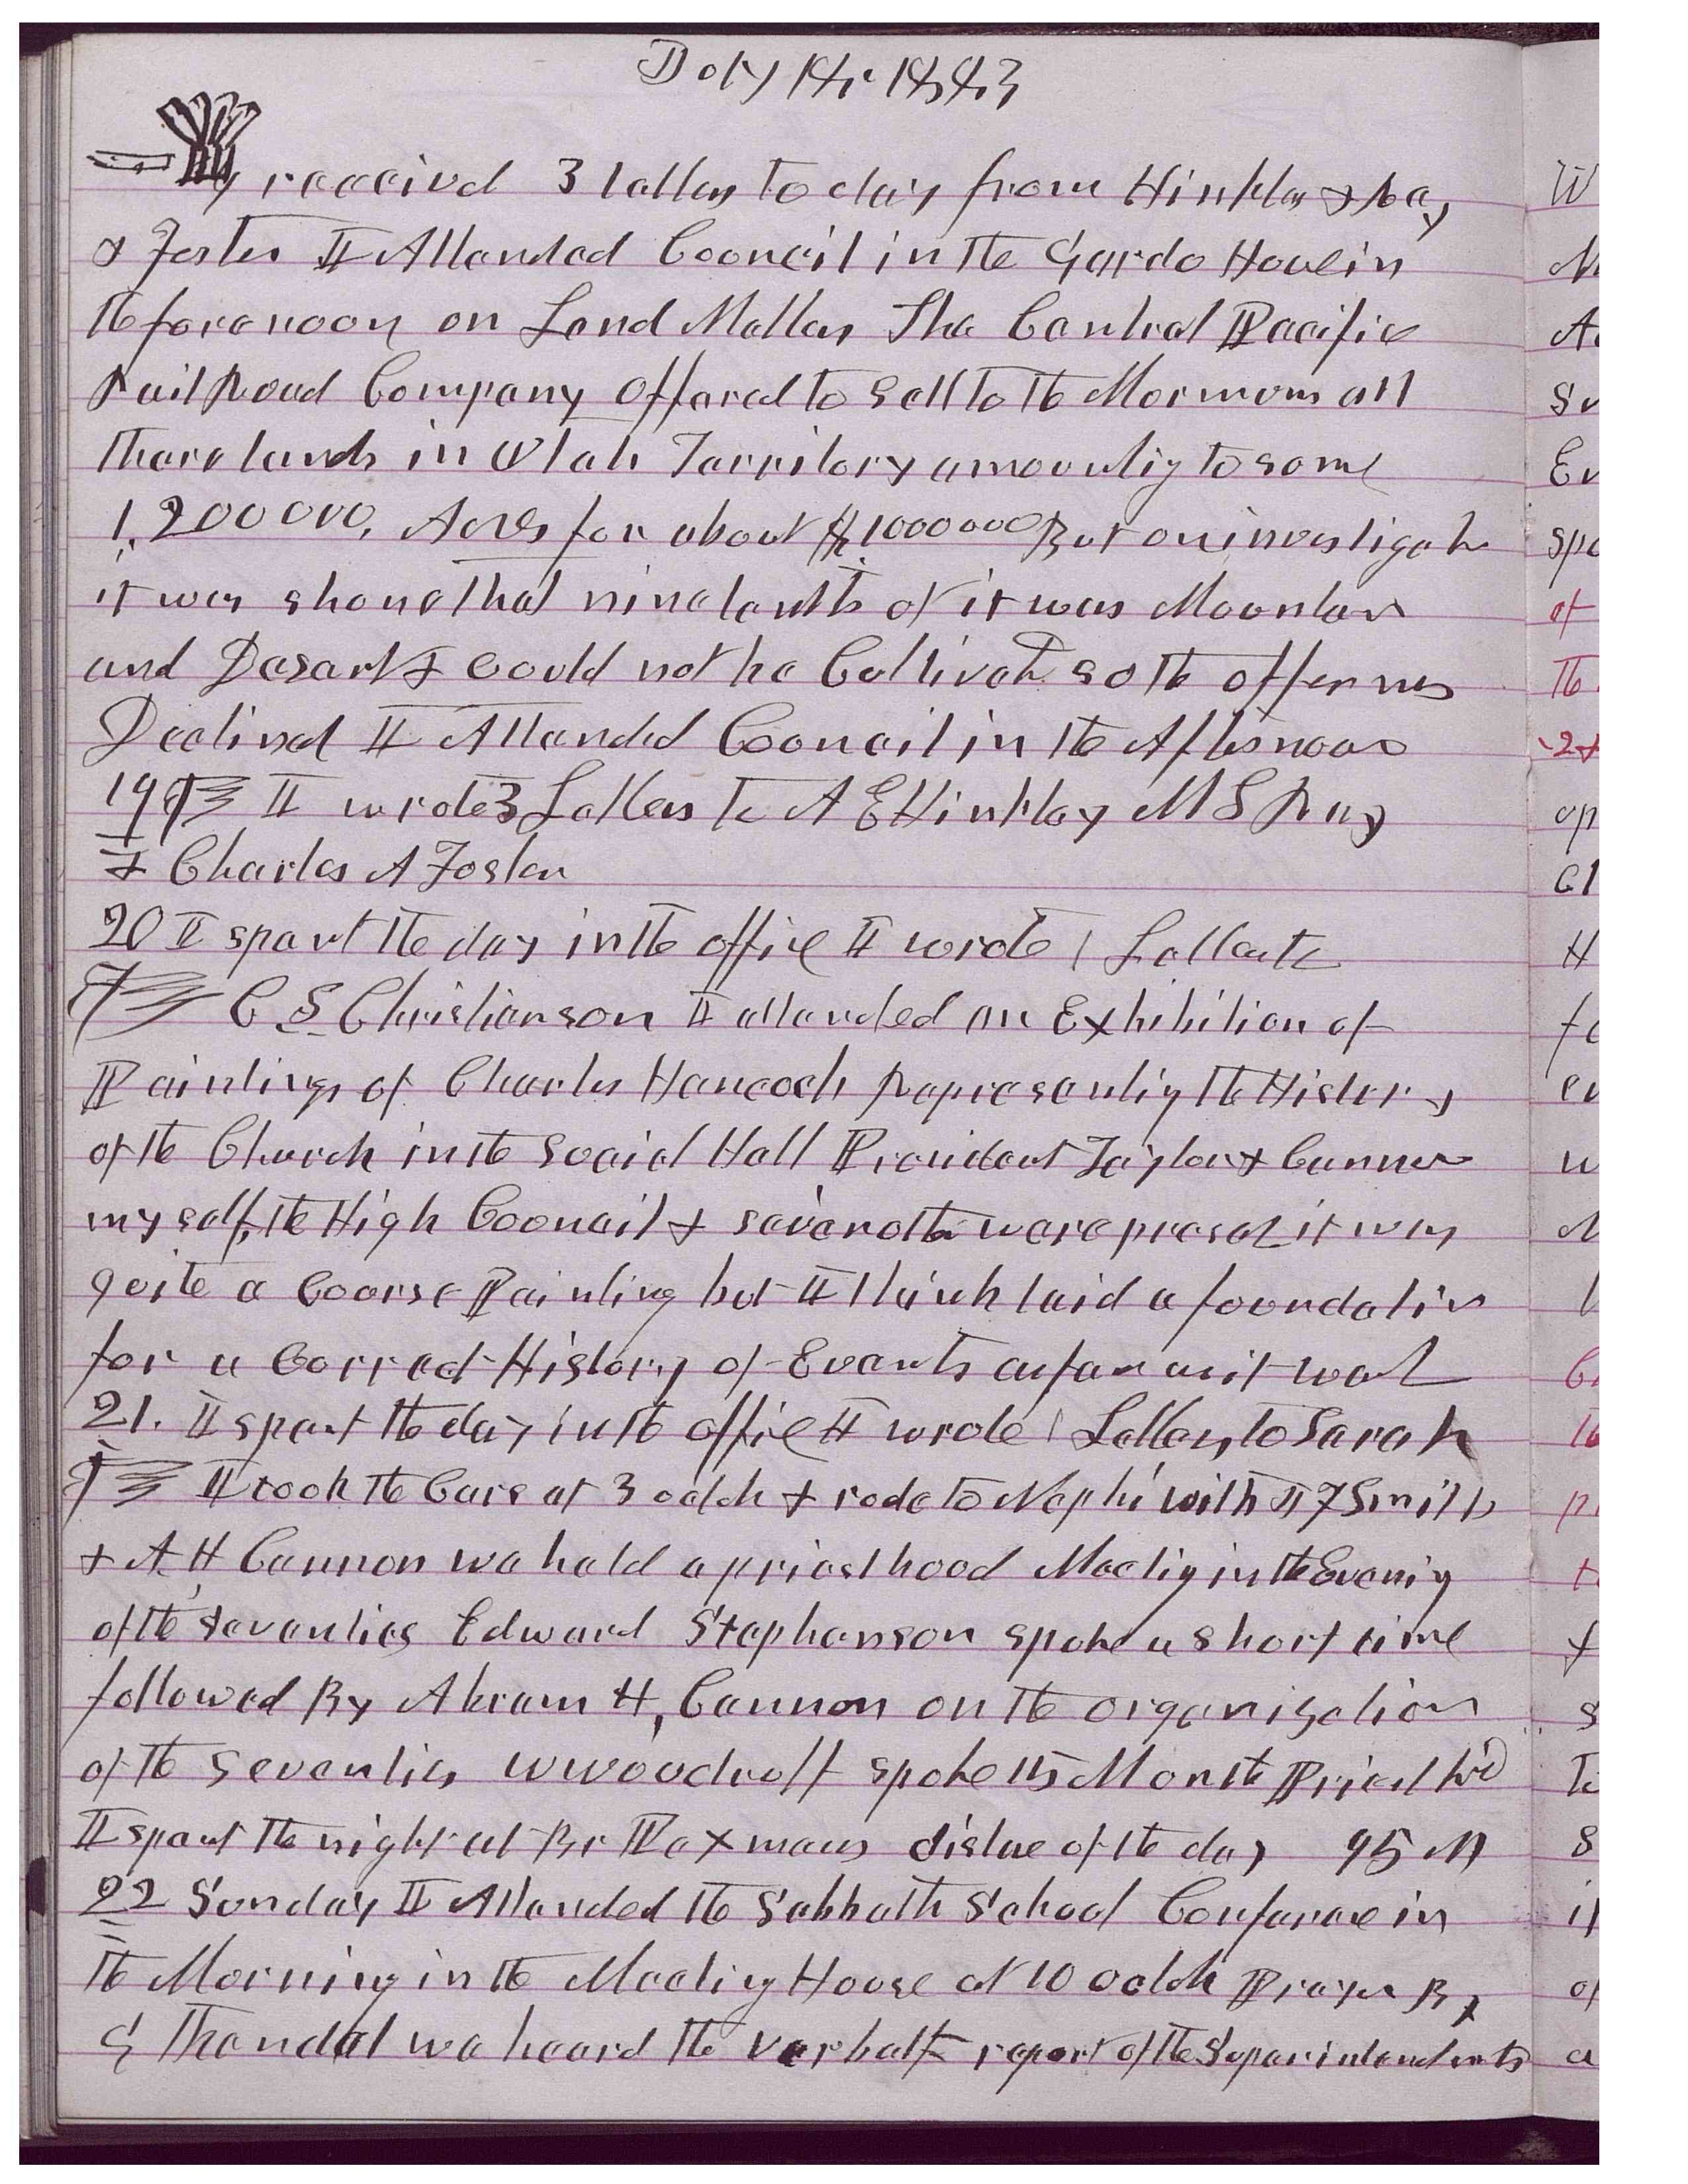 July 18. 1883
I received 3 letters to day from Hinkley & Ray
& Foster I Attended Council in the Gardo House in
the forenoon on Land Matters The Central Pacific
rail Road Company Offered to sell to the Mormons all
there lands in Utah Territory amounting to some
1,200000, Acres for about $1000000 But on investigate
it was shone that nine tenths of it was Mountain
and Desart & Could not be Cultivate so the offer was
Declined I Attended Council in the Afternoon
19 I wrote 3 Letters to A E Hinkley M S Ray
& Charles A Foster
20 I spent the day in the office I wrote 1 Letter to
C S Christianson I attended an Exhibition of
Paintings of Charles Hancock Representing the History
of the Church in the Social Hall President Taylor & Cannon
myself, the High Council & sever others were present it was
quite a Coarse Painting but I think laid a foundation
for a Correct History of Events as far as it went
21. I spent the day in the office I wrote 1 Letters to Sarah
I took the Cars at 3 oclok & rode to Nephi with J F Smith
& A H Cannon we held a priesthood Meeting in the Evenig
of the Seventies Edward Stephenson spoke a short time
followed By Abram H, Cannon on the organization
of the Seventies W Woodruff spoke 15 M on the Priesthood
I spent the night at Br Paxmans distane of the day 95 M
22 Sunday I Attended the Sabbath School Conference in
the Morning in the Meeting House at 10 oclok Prayer By
G Kendal we heard the verbal report of the Superintendents